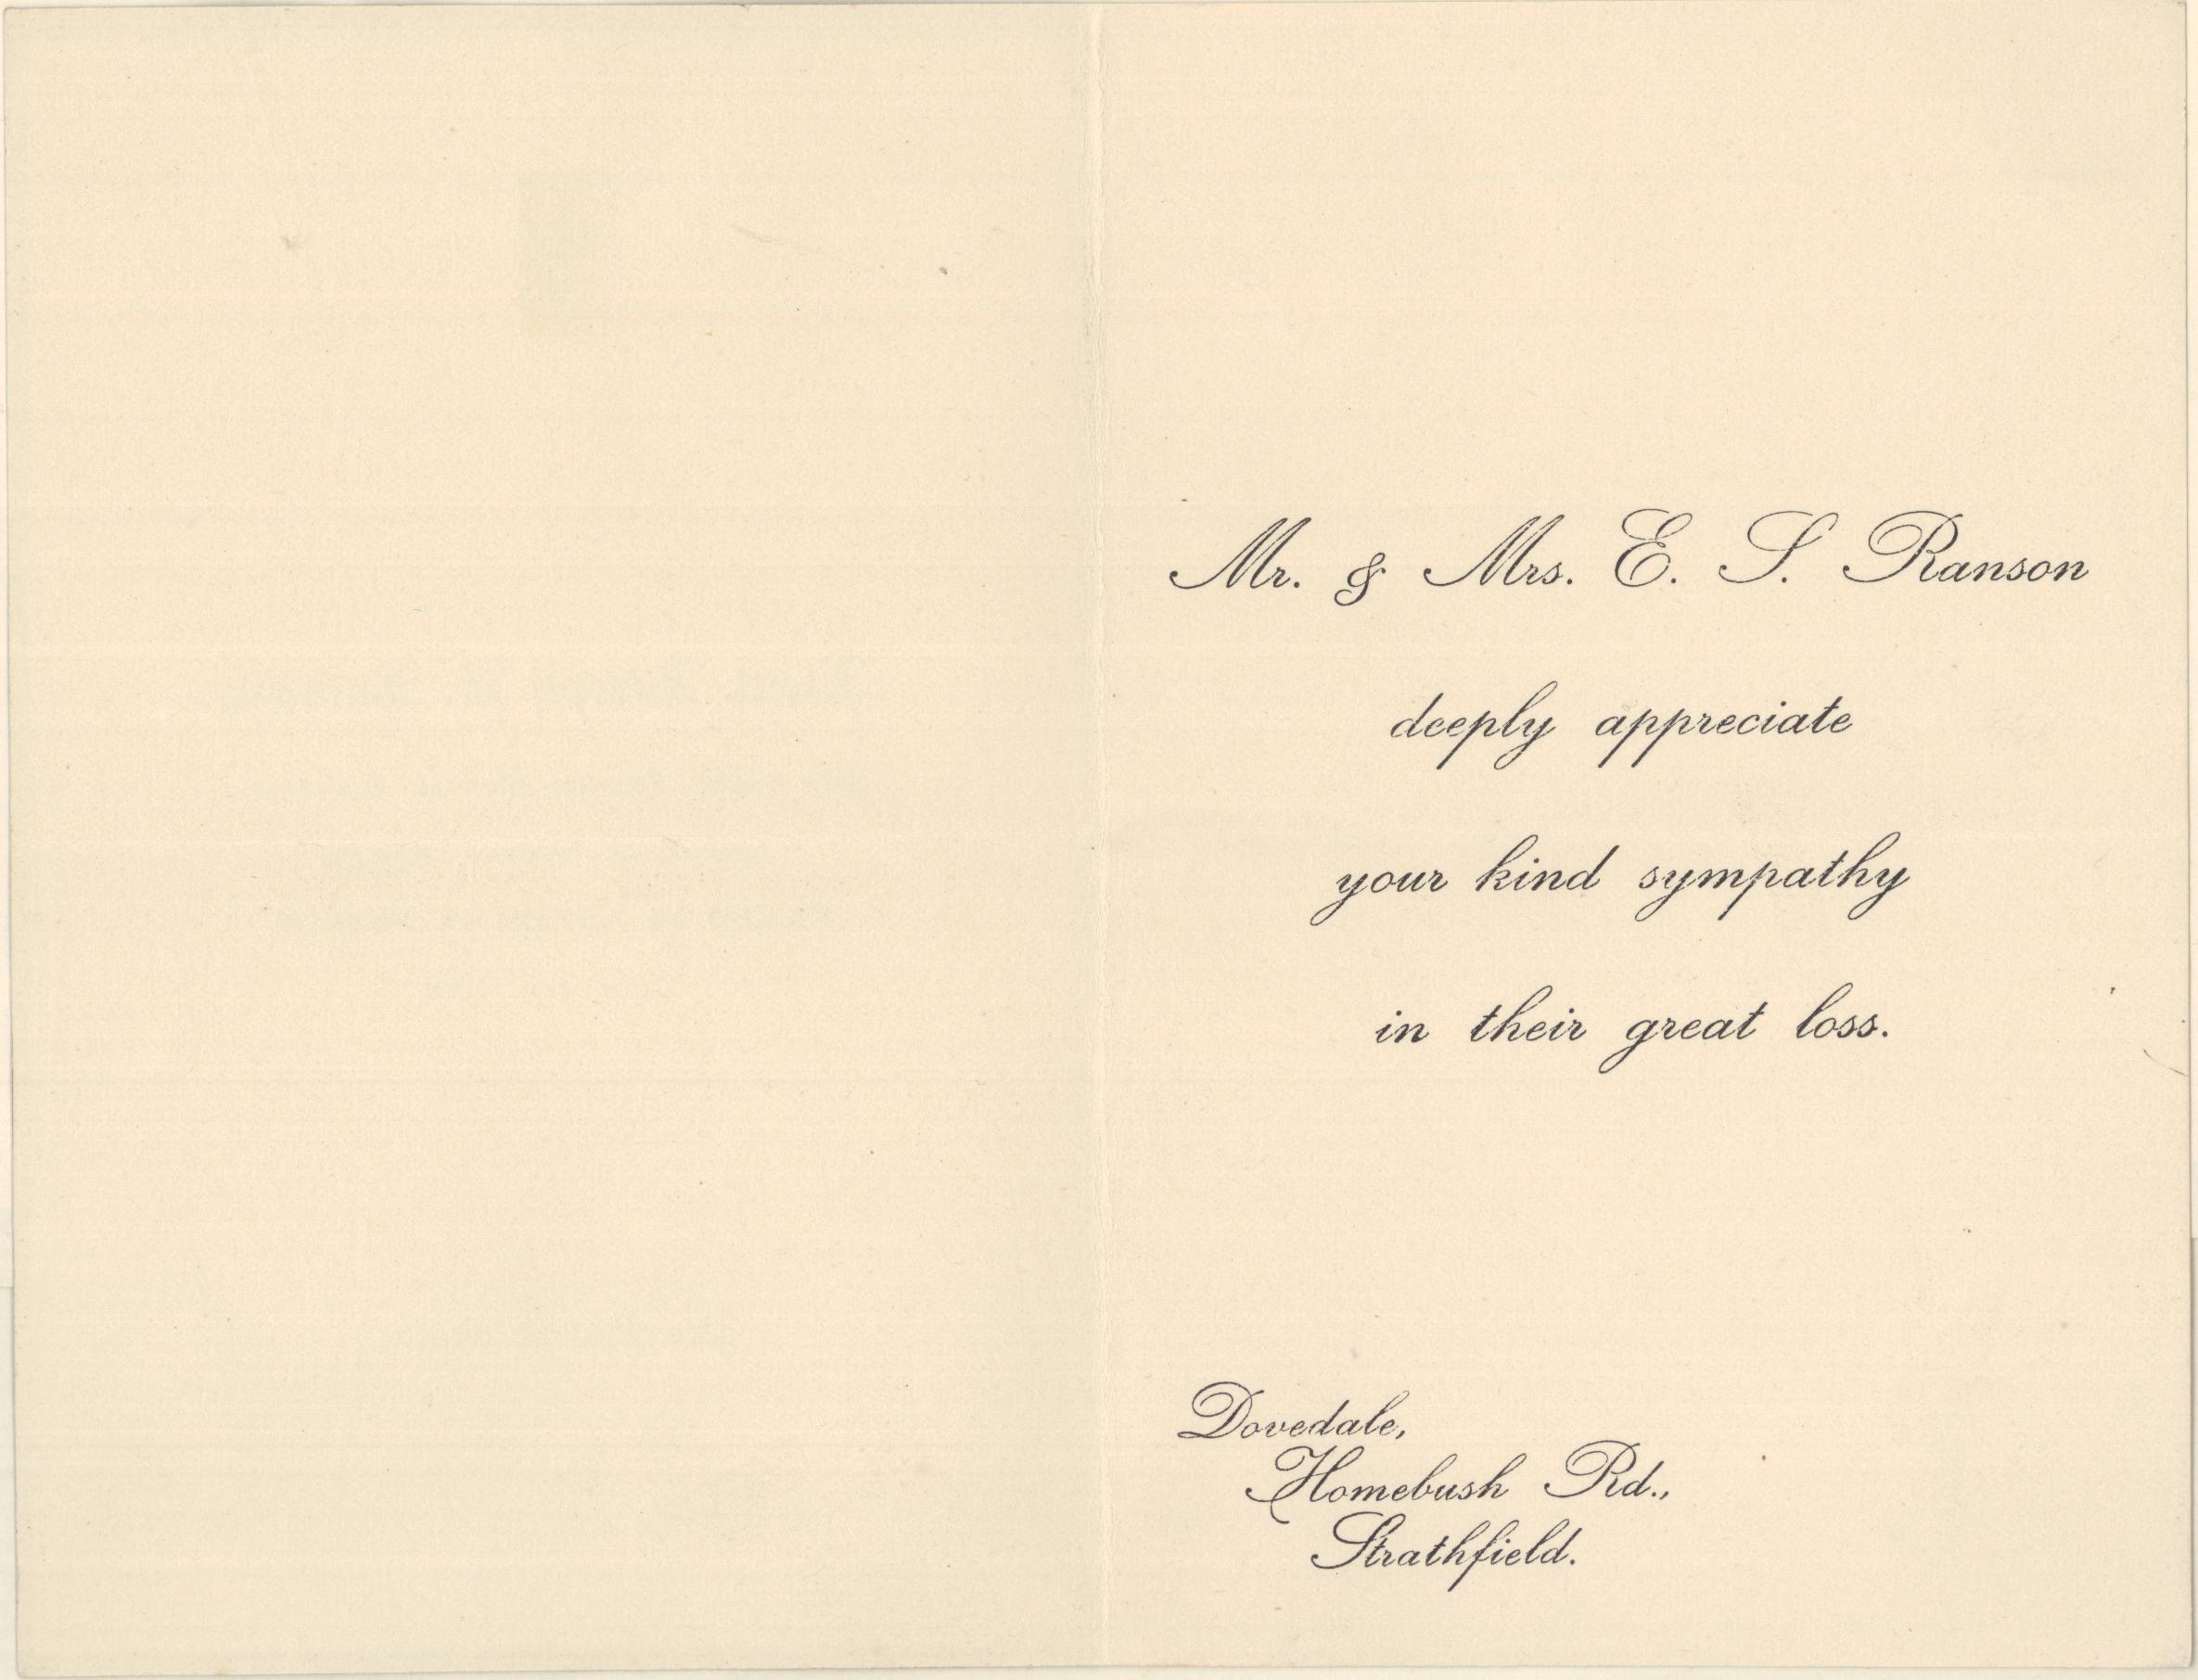 Mr. & Mrs. E. S. Ranson
deeply appreciate
your kind sympathy
in their great loss.
Dovedale,
Homebush Rd.,
Strathfield.